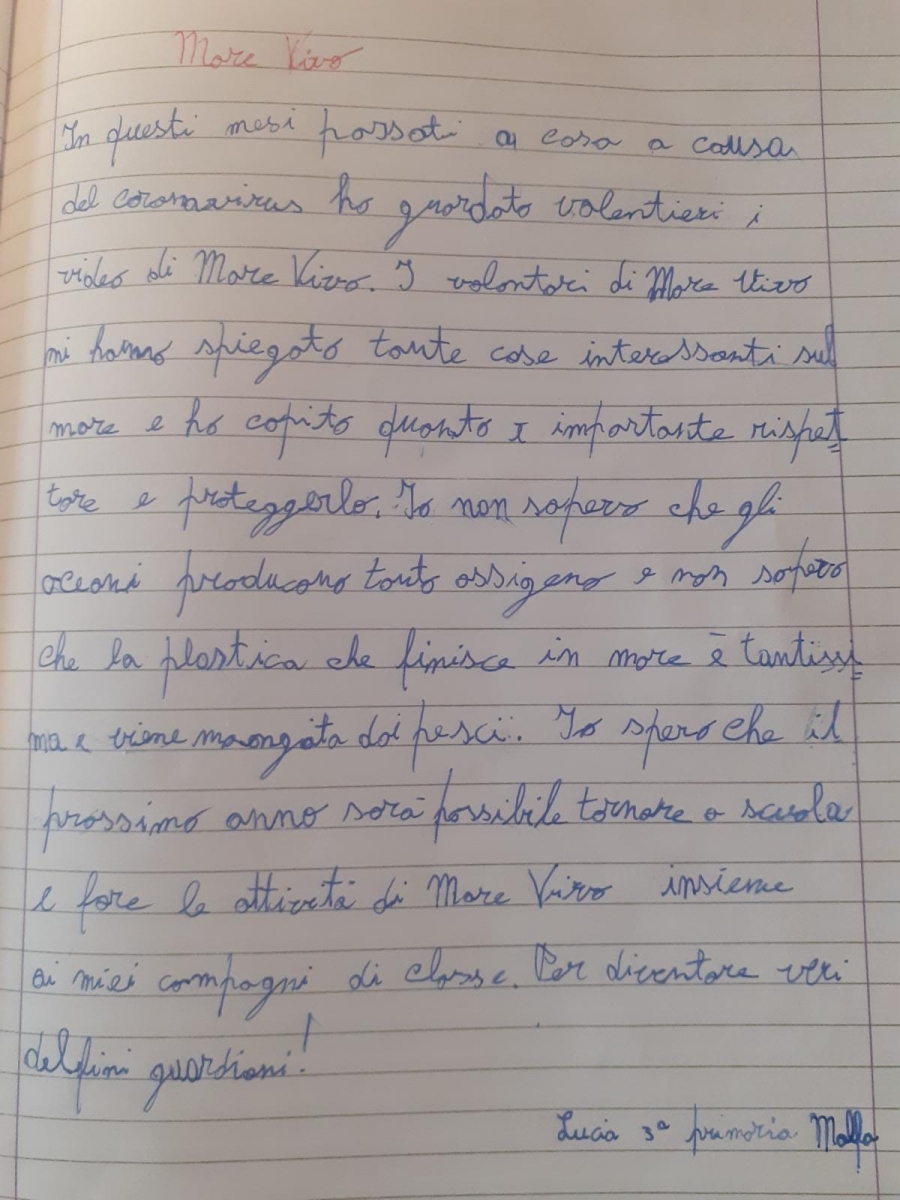 Mare Vivo
In questi mesi passati a casa a causa
del coronavirus ho guardato volentieri i
video di Mare Vivo. I volontari di Mare Vivo
mi hanno spiegato tante cose interessanti sul
mare e ho capito quanto è importante rispet
tare e proteggerlo. Io non sapevo che gli
oceani producono tanto ossigeno e non sapevo
che la plastica che finisce in mare è tantissi
ma e viene mangiata dai pesci. Io spero che il
prossimo anno sarà possibile tornare a scuola
e fare le attività di Mare Vivo insieme
ai miei compagni di classe. Per diventare veri
delfini guardiani!
Lucia 3ª primaria Malfa